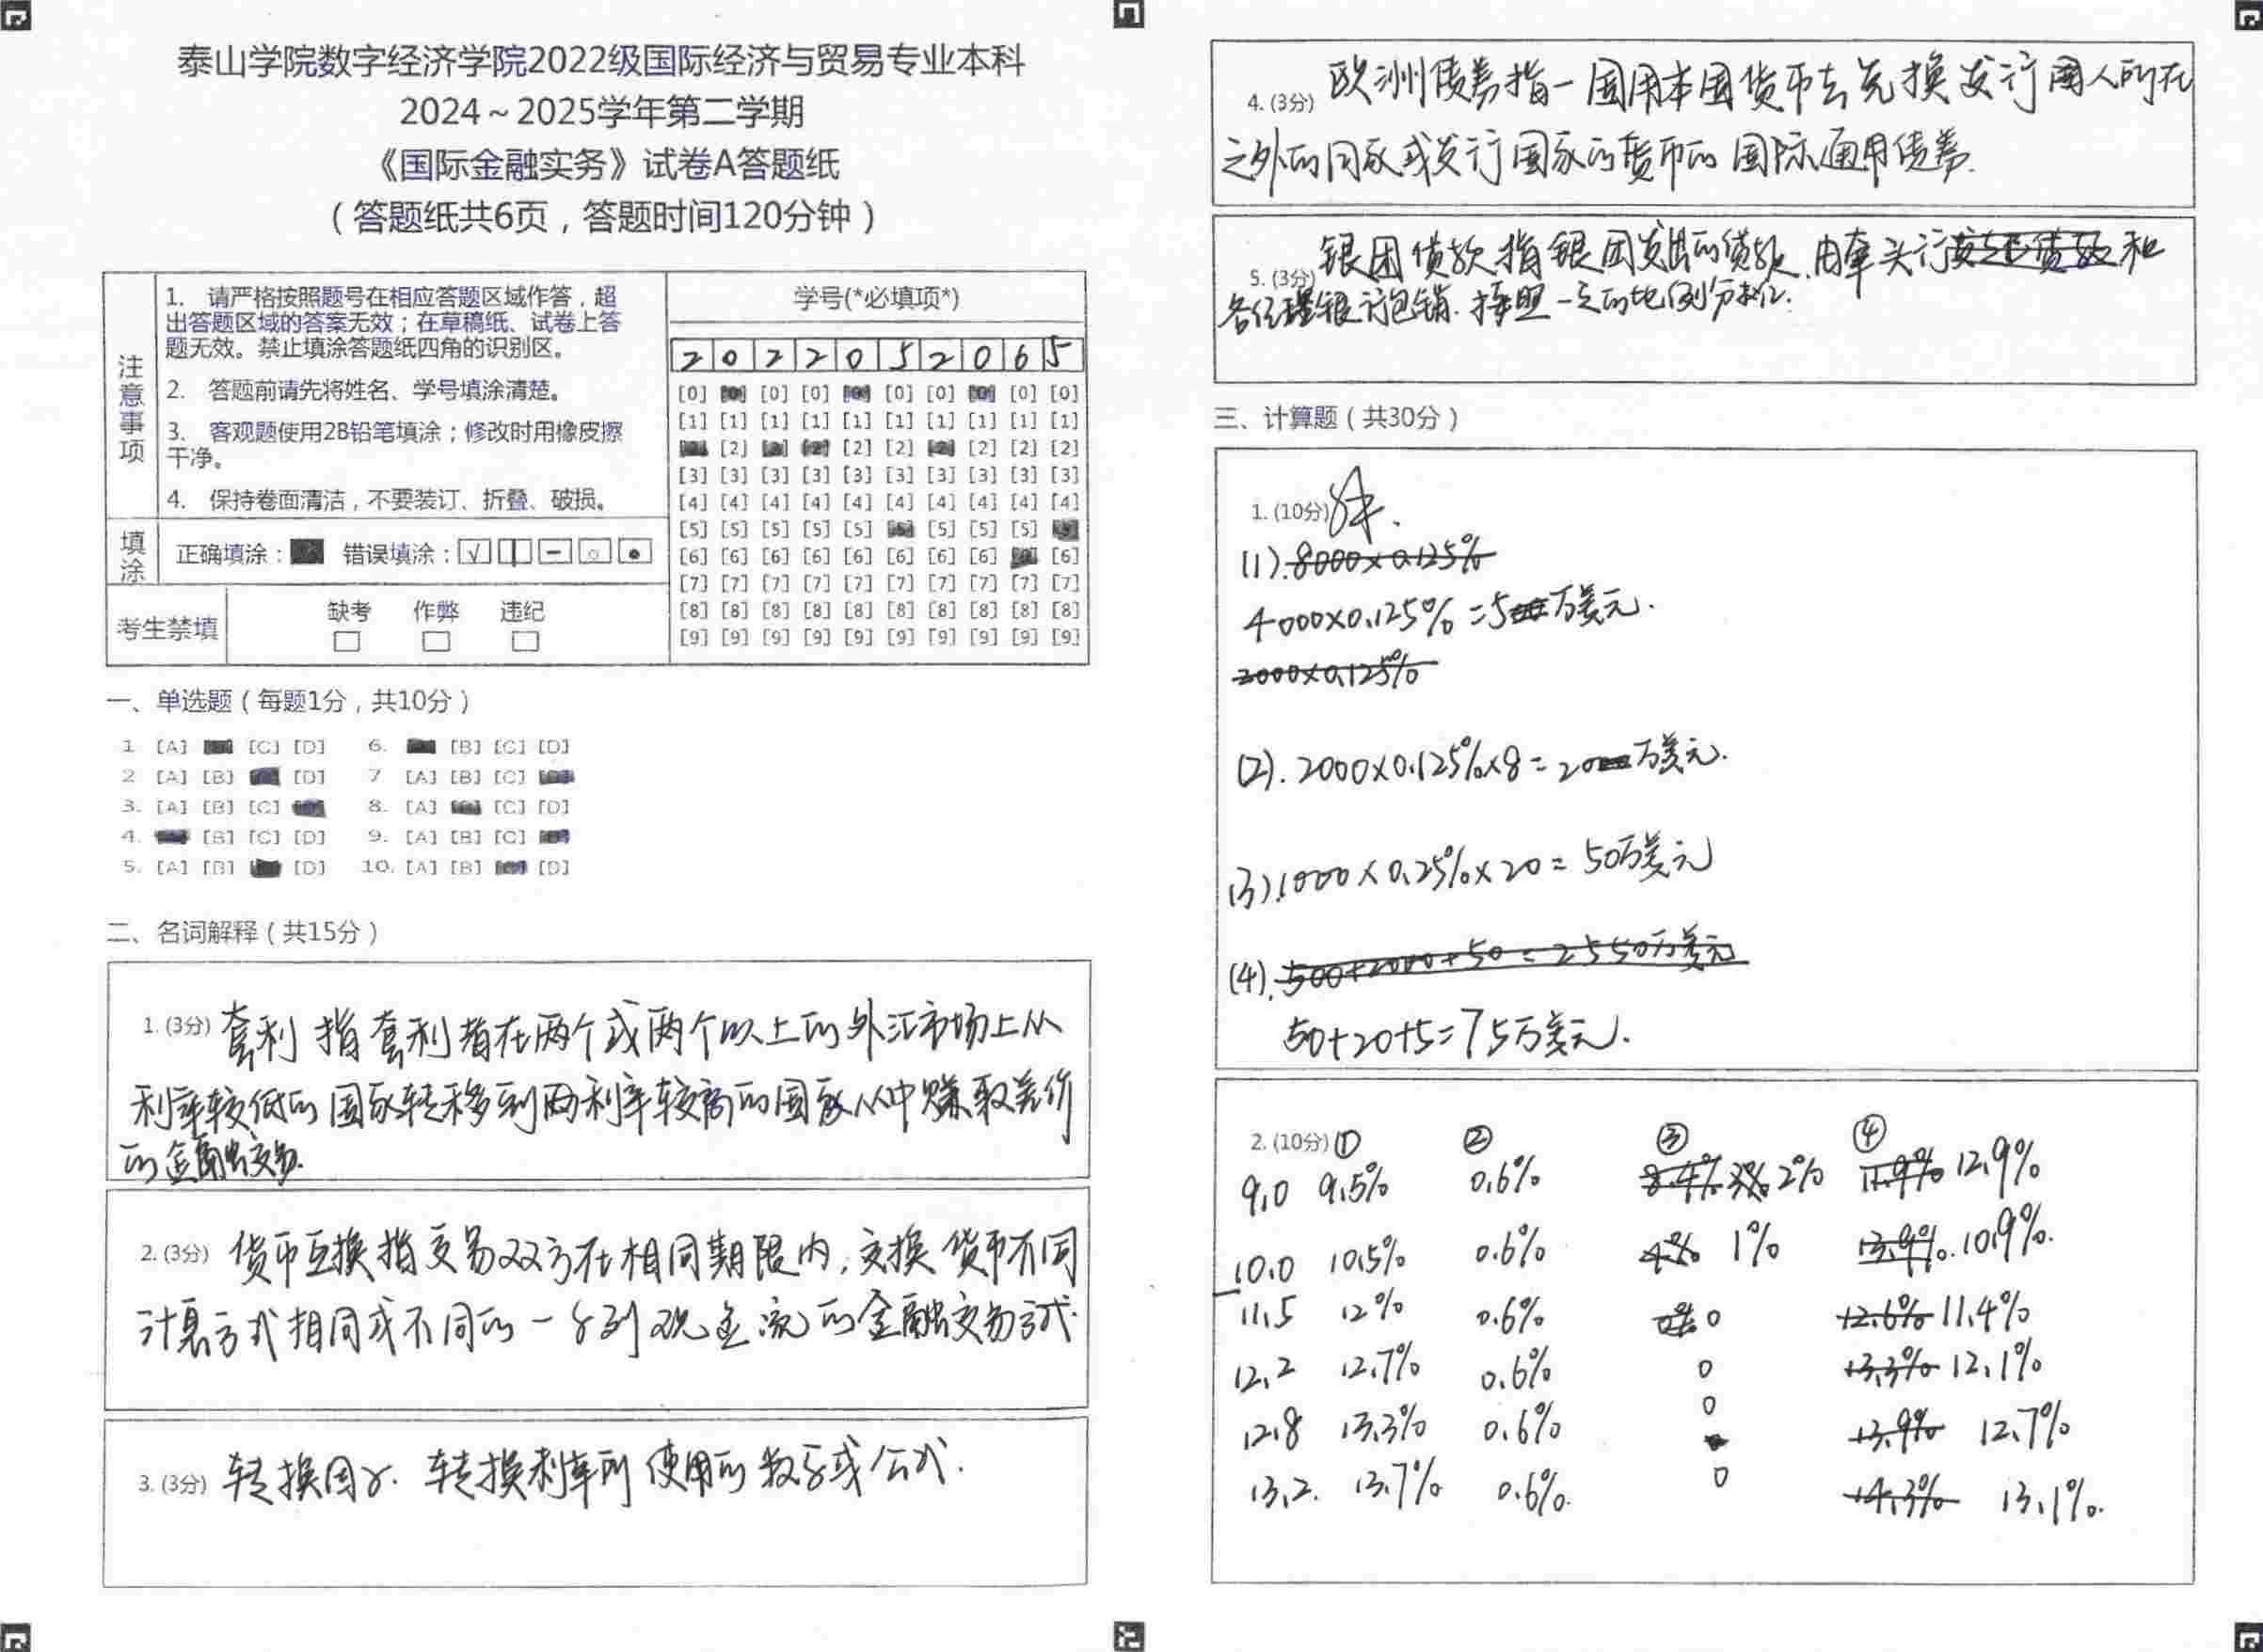 泰山学院数字经济学院2022级国际经济与贸易专业本科
2024～2025学年第二学期
《国际金融实务》试卷A答题纸
（答题纸共6页，答题时间120分钟）
注意事项
1. 请严格按照题号在相应答题区域作答，超
出答题区域的答案无效；在草稿纸、试卷上答
题无效。禁止填涂答题纸四角的识别区。
2. 答题前请先将姓名、学号填涂清楚。
3. 客观题使用2B铅笔填涂；修改时用橡皮擦
干净。
4. 保持卷面清洁，不要装订、折叠、破损。
填涂
正确填涂： 错误填涂：
考生禁填
缺考 作弊 违纪
学号(*必填项*)
2 0 2 2 0 5 2 0 6 5
[0] [0] [0] [0] [0] [0] [0] [0] [0] [0]
[1] [1] [1] [1] [1] [1] [1] [1] [1] [1]
[2] [2] [2] [2] [2] [2] [2] [2] [2] [2]
[3] [3] [3] [3] [3] [3] [3] [3] [3] [3]
[4] [4] [4] [4] [4] [4] [4] [4] [4] [4]
[5] [5] [5] [5] [5] [5] [5] [5] [5] [5]
[6] [6] [6] [6] [6] [6] [6] [6] [6] [6]
[7] [7] [7] [7] [7] [7] [7] [7] [7] [7]
[8] [8] [8] [8] [8] [8] [8] [8] [8] [8]
[9] [9] [9] [9] [9] [9] [9] [9] [9] [9]
一、单选题（每题1分，共10分）
1 [A] [C] [D] 6. [B] [C] [D]
2 [A] [B] [D] 7 [A] [B] [C]
3. [A] [B] [C] 8. [A] [C] [D]
4. [B] [C] [D] 9. [A] [B] [C]
5. [A] [B] [D] 10. [A] [B] [D]
二、名词解释（共15分）
1. (3分) 套利 指套利者在两个或两个以上的外汇市场上从
利率较低的国家转移到两利率较高的国家从中赚取差价
的金融交易.
2. (3分) 货币互换指交易双方在相同期限内,交换货币不同
计息方式相同或不同的一系列现金流的金融交易方式.
3. (3分) 转换因子. 转换利率所使用的数字或公式.
4. (3分) 欧洲债券指一国用本国货币去兑换发行国人所在
之外的国家或发行国家的货币的国际通用债券.
5. (3分) 银团贷款指银团发出的贷款,由牵头行和
各经理银行包销.按照一定的比例分摊.
三、计算题（共30分）
1. (10分) 解.
(1). 8000×0.125%
4000×0.125%=5万美元.
2000×0.125%
(2). 2000×0.125%×8=20万美元.
(3).1000×0.25%×20=50万美元
(4). 500+2000+50=2550万美元
50+20+5=75万美元.
2. (10分) ① ② ③ ④
9.0 9.5% 0.6% 8.4% 2% 11.9% 12.9%
10.0 10.5% 0.6% 4% 1% 13.9% 10.9%.
11.5 12% 0.6% 0 12.6% 11.4%
12.2 12.7% 0.6% 0 13.3% 12.1%
12.8 13.3% 0.6% 0 13.9% 12.7%
13.2. 13.7% 0.6%. 0 14.3% 13.1%.